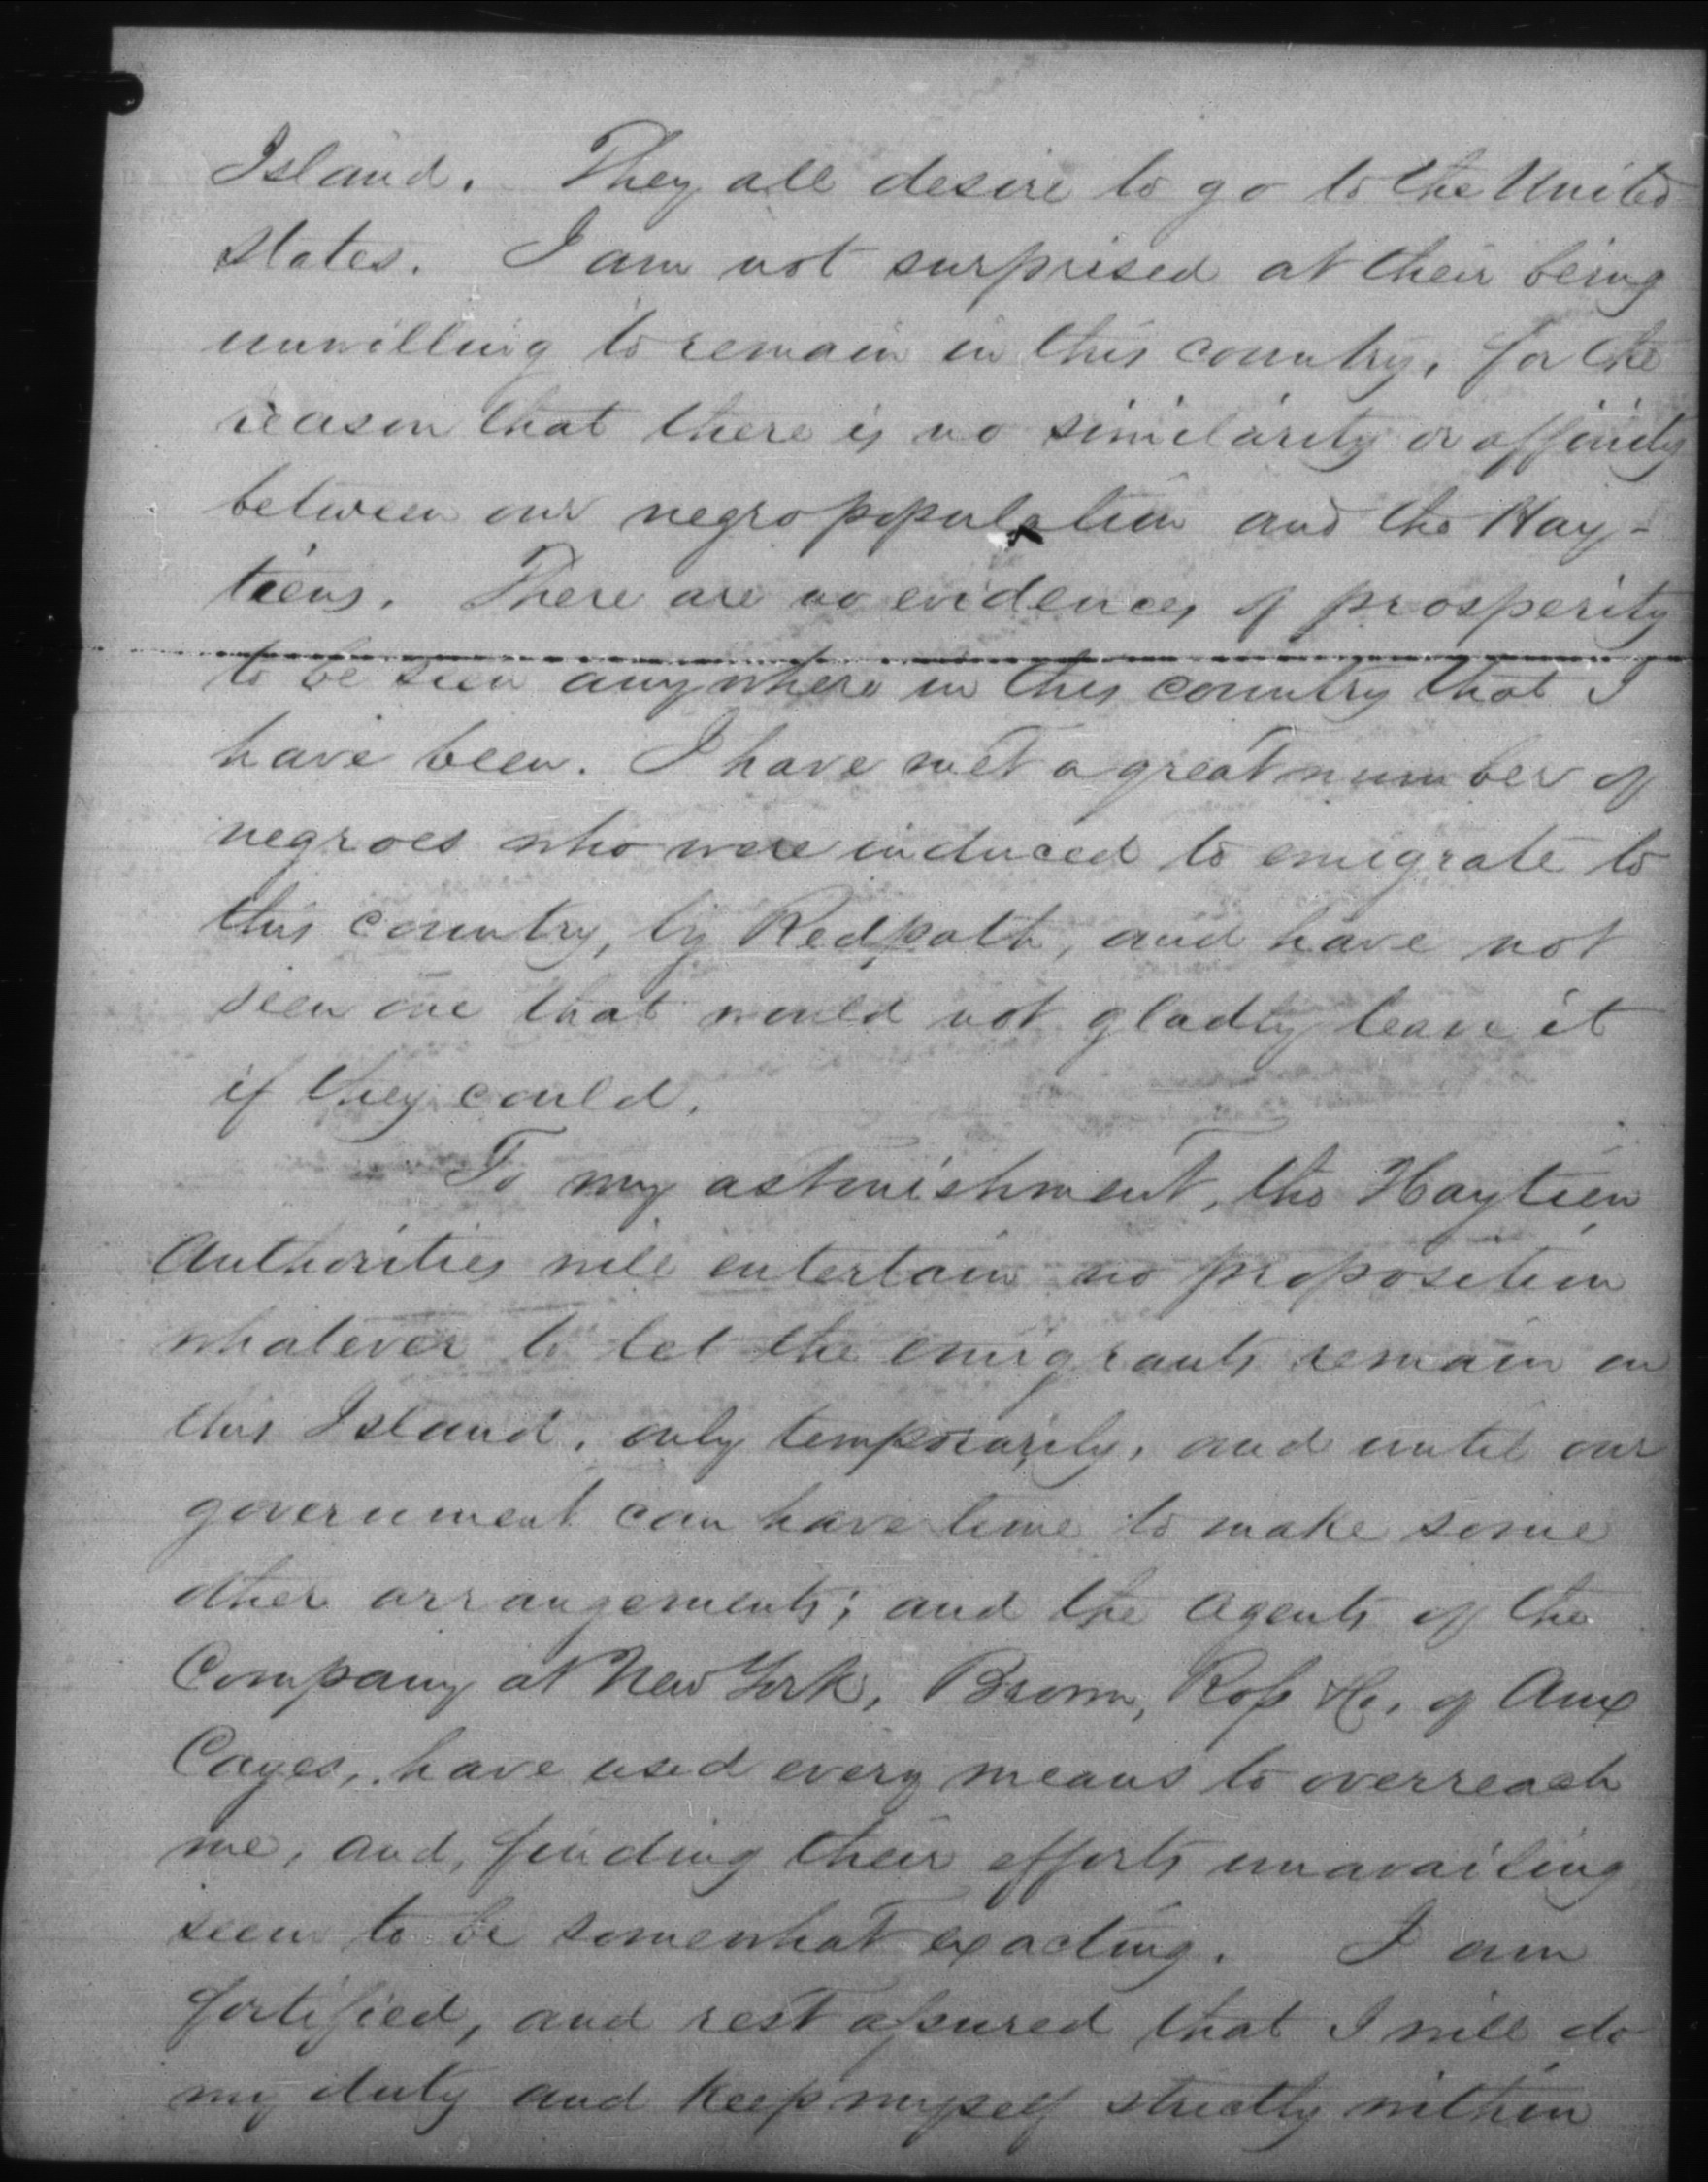 Island. They all desire to go to the United
States. I am not surprised at their being
unwilling to remain in this country, for the
reason that there is no similarity or affinity
between our negro population and the Hay-
tiens. There are no evidences of prosperity
to be seen anywhere in this country that I
have been. I have met a great number of
negroes who were induced to emigrate to
this country, by Redpath, and have not
seen one that would not gladly leave it
if they could.
To my astonishment, the Haytien
Authorities will entertain no proposition
whatever to let the emigrants remain on
this Island, only temporarily, and until our
government can have time to make some
other arrangements; and the Agents of the
Company at New York, Brown, Ross & Co. of Aux
Cayes, have used every means to overreach
me, and, finding their efforts unavailing
seem to be somewhat exacting. I am
fortified, and rest assured that I will do
my duty and keep myself strictly within